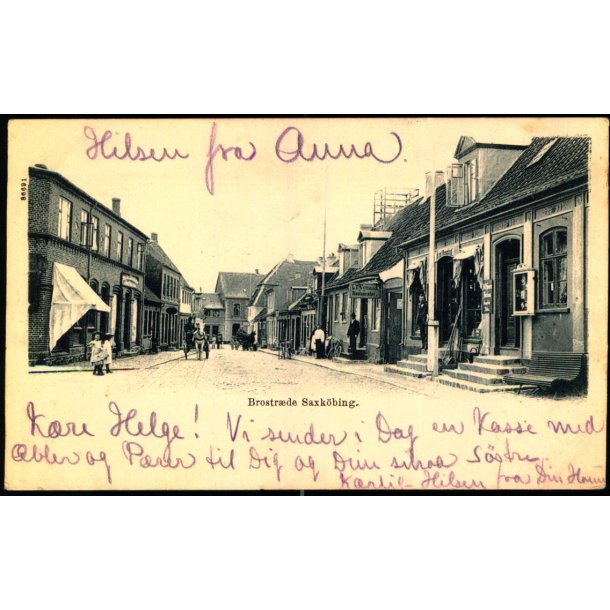 Hilsen fra Anna.
86691
Brostræde Saxköbing.
Kære Helge! Vi sender i Dag en Kasse med
Æbler og Pærer til Dig og Dine smaa Söstre.
Kærlig Hilsen fra Din